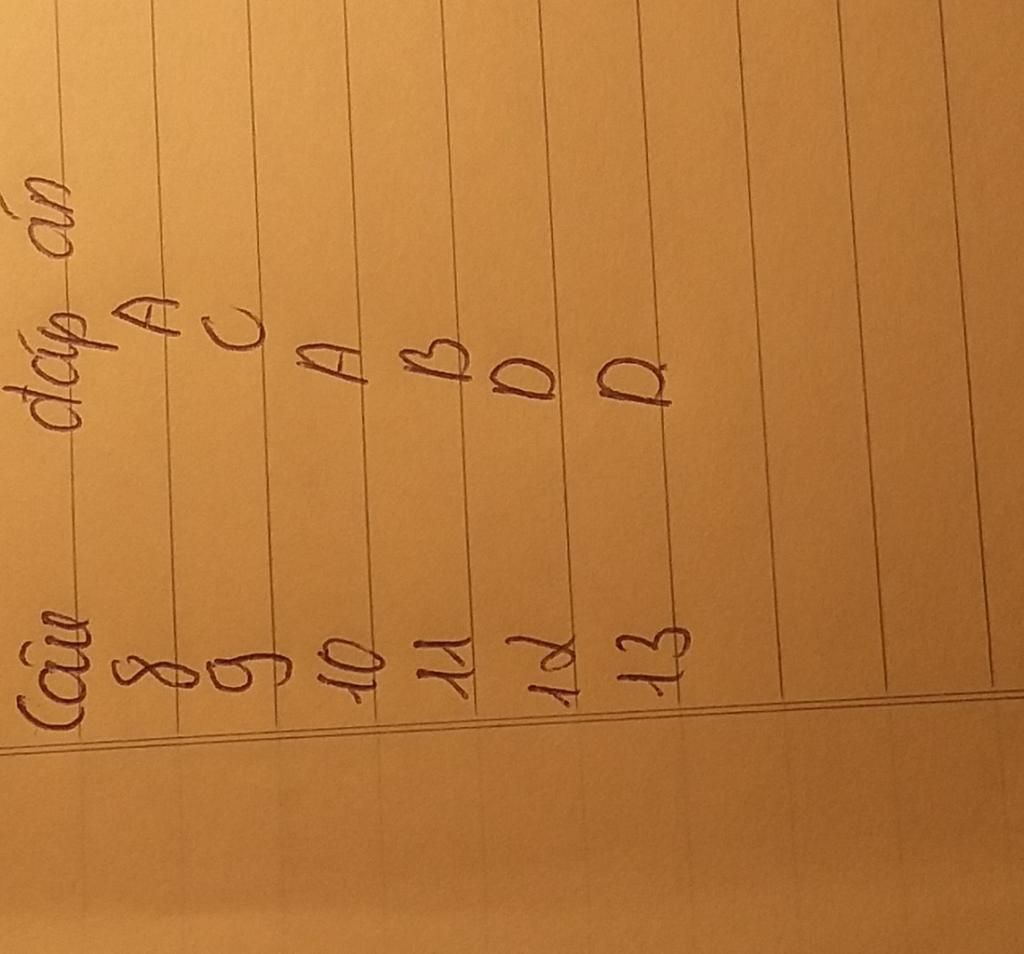 Câu đáp án
8 A
9 C
10 A
11 B
12 D
13 D